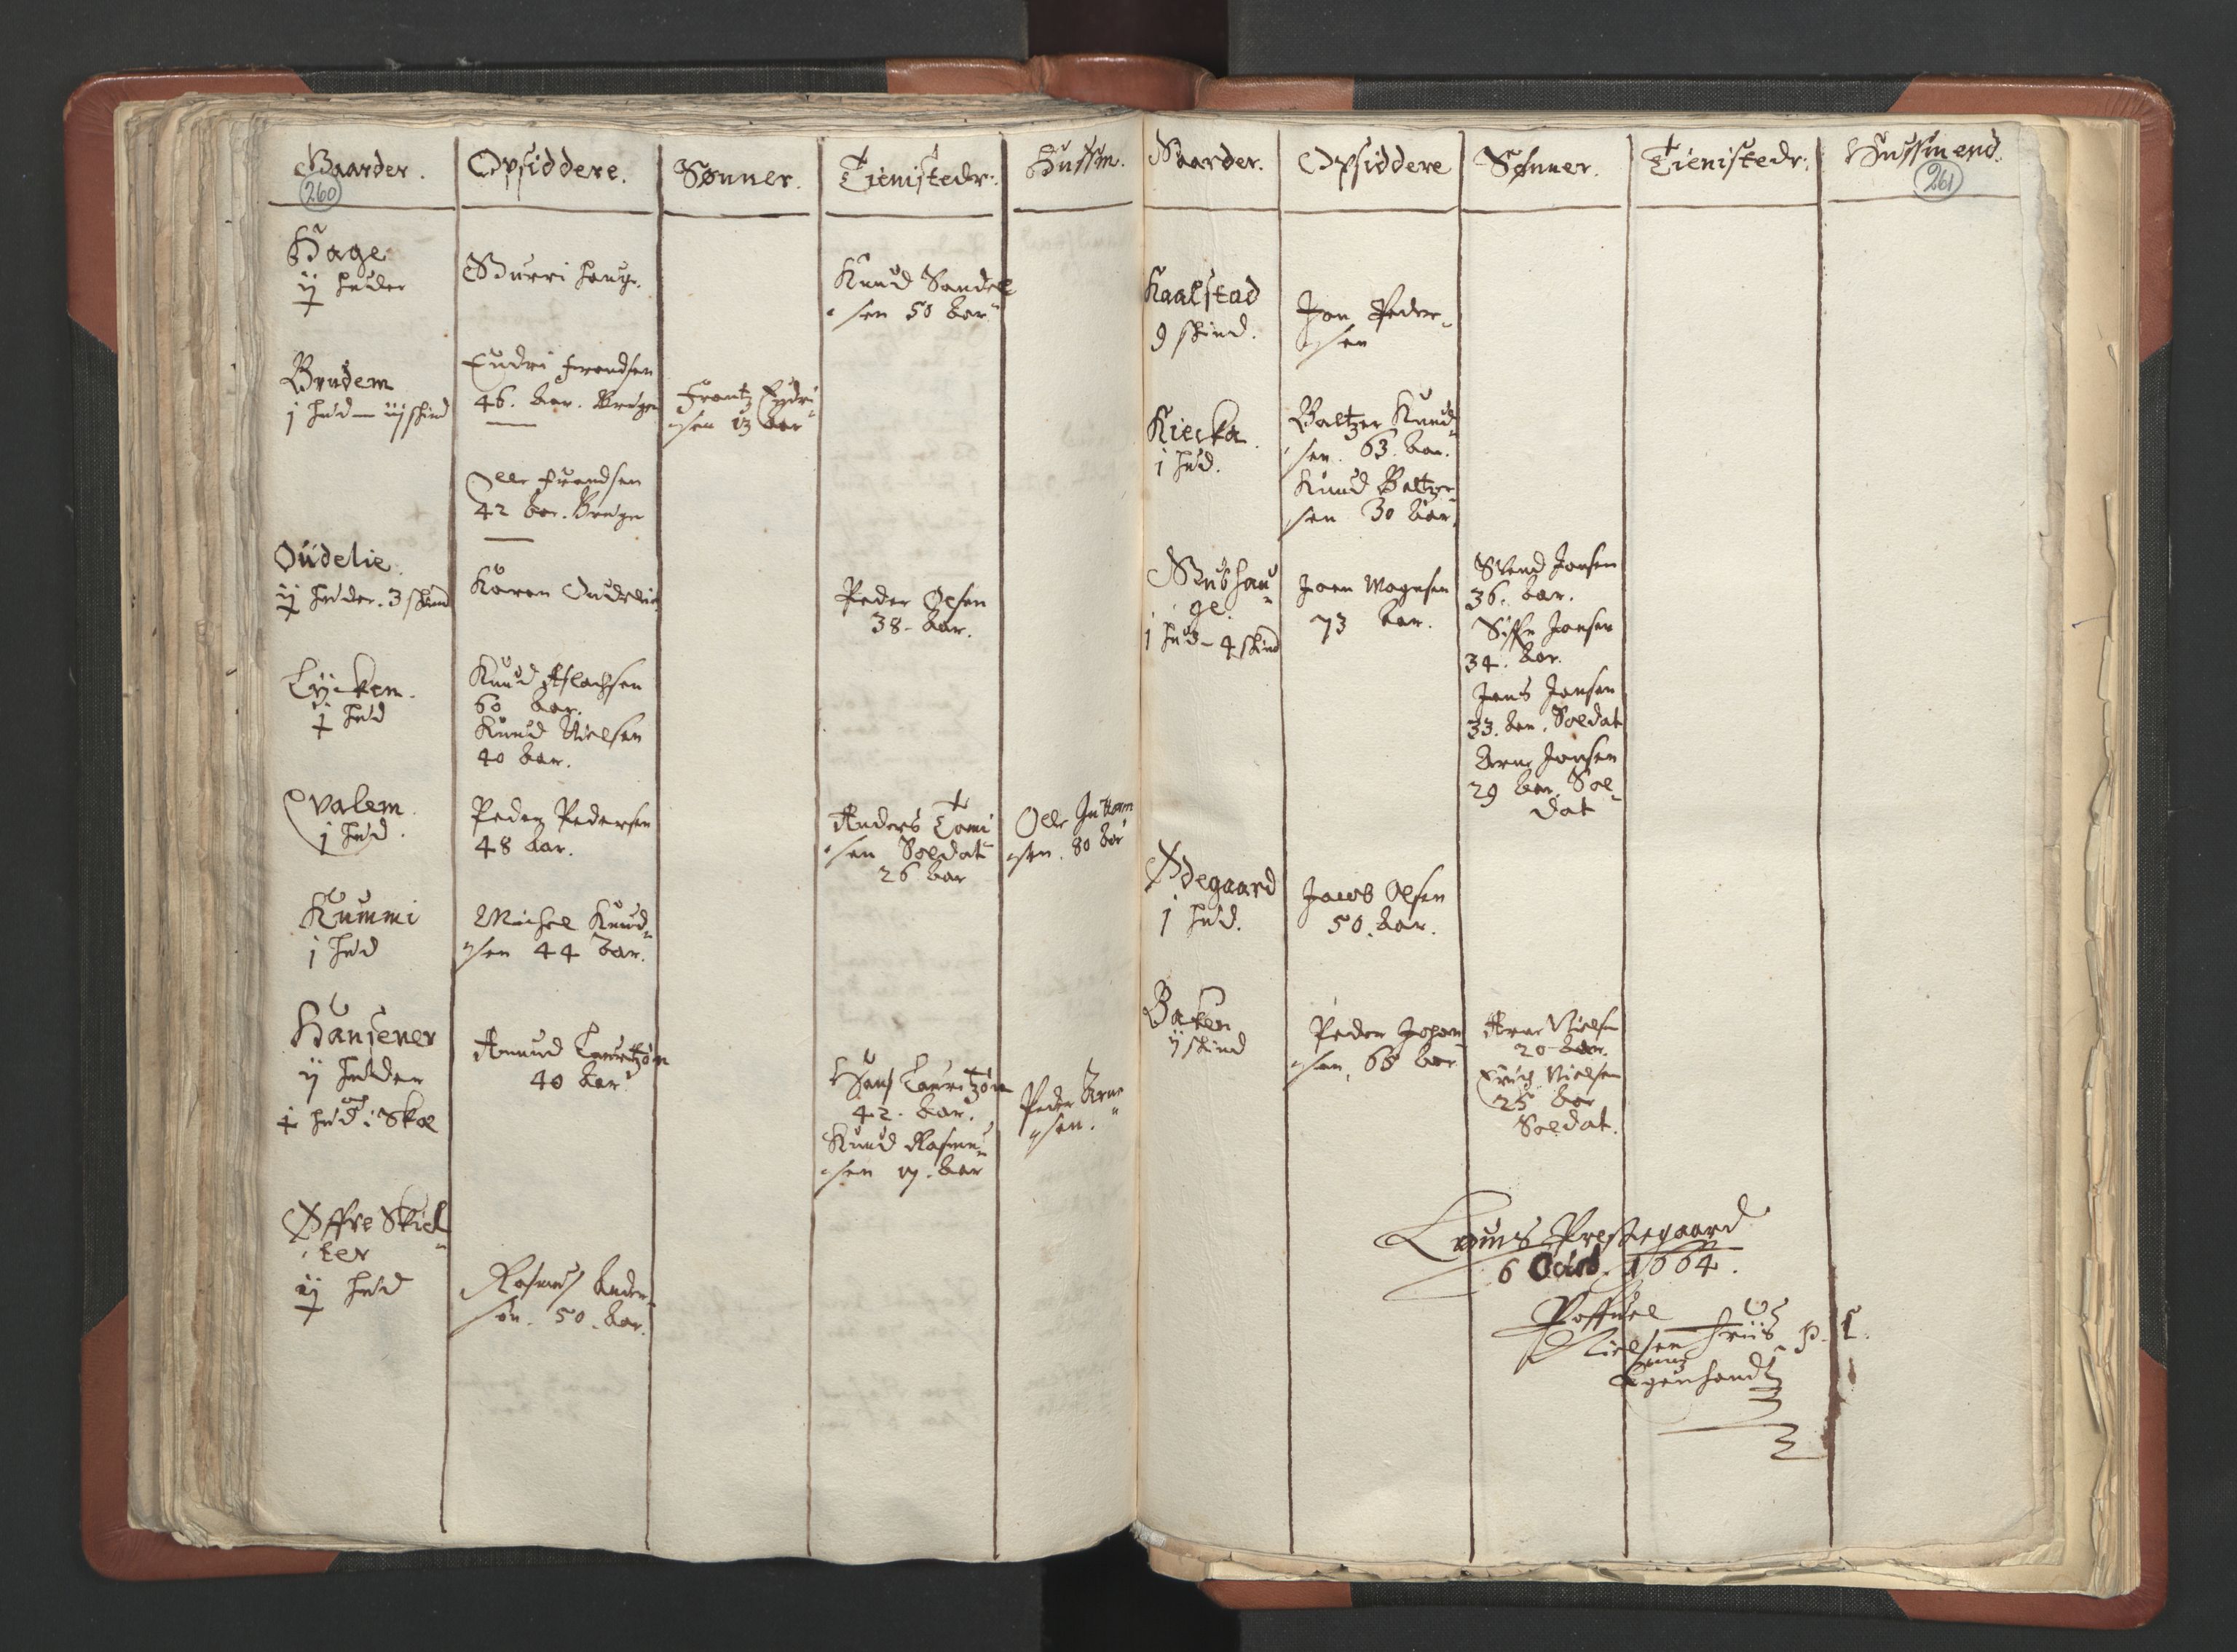 Gaarder. Opsiddere. Sønner. Tienistedr: Hussm.
260
Hage
ij huder
Gurri Hauge.
Knud Sandel
sen 50 Aar
Brudem
j hud — iij skind
Endri Frandsen
46. Aar. Bruger
Frantz Endri
sen 13 Aar
Olle Frandsen
42 Aar. Bruger
Oudelie
ij huder. 3 skind
Karen Oudelie
Peder Olsen
38 - Aar.
Lycken.
j hud
Knud Aslachsen
60 Aar.
Knud Nielsen
40 Aar.
Qvalem.
j hud.
Peder Pedersen
48 Aar.
Anders Tomi
sen Soldat
26 Aar
Olle Guttorm
sen. 80 Aar
Kummi
j hud
Michel Knud
sen 44 Aar.
Hansener
ij huder
och
j hud i Skæl
Amund Lauritzøn
40 Aar.
Hans Lauritzøn
42. Aar.
Knud Rasmu
sen 17. Aar
Peder Arne
sen.
Øffre Skiel
ter
ij hud
Rasmus Ander
søn. 50. Aar.
Gaarder. Opsiddere Sønner. Tienistedr: Hussmend.
261
Kaalstad
9 skind.
Jon Peder
sen
Kiecka.
1 hud.
Baltzer Knud
sen. 63. Aar.
Knud Baltzer
sen 30 Aar.
Gubhau
ge.
1 hud - 4 skind
Joen Mognsen
73 Aar.
Svend Jonsen
36. Aar.
Siffr Jonsen
34. Aar.
Jens Jonsen
33. Aar. Soldat
Arne Jonsen
29 Aar. Sol
dat
Ødegaard
1 hud.
Jacob Olsen
50. Aar.
Baken
ij skind
Peder Johan
sen, 60 Aar
Arne Nielsen
20 - Aar.
Erich Nielsen
25 Aar
Soldat.
Prestegaard
6 Octob. 1664.
Poffuel
Nielsen Friis p. L.
mpp
Egenhandt